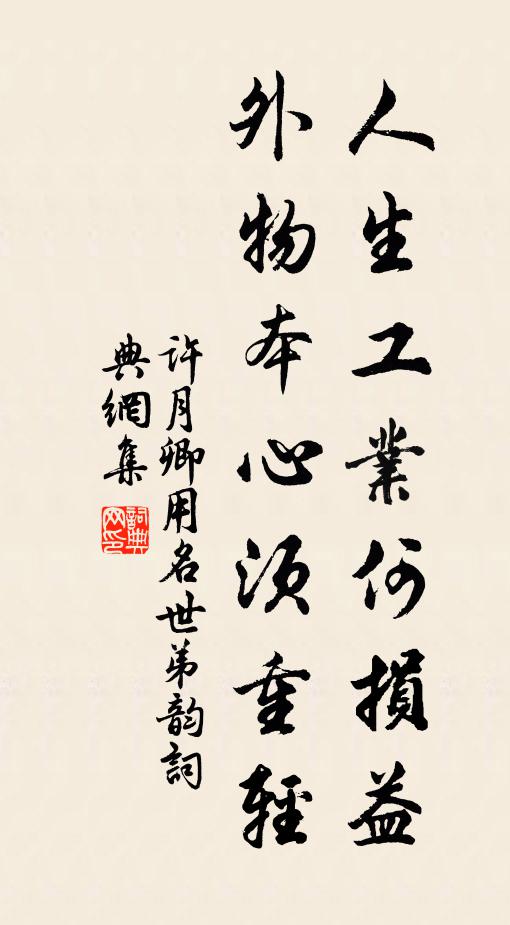 人生工業何損益
外物本心須重輕
許月卿用名世弟韵詞
典網集
詞典
网印